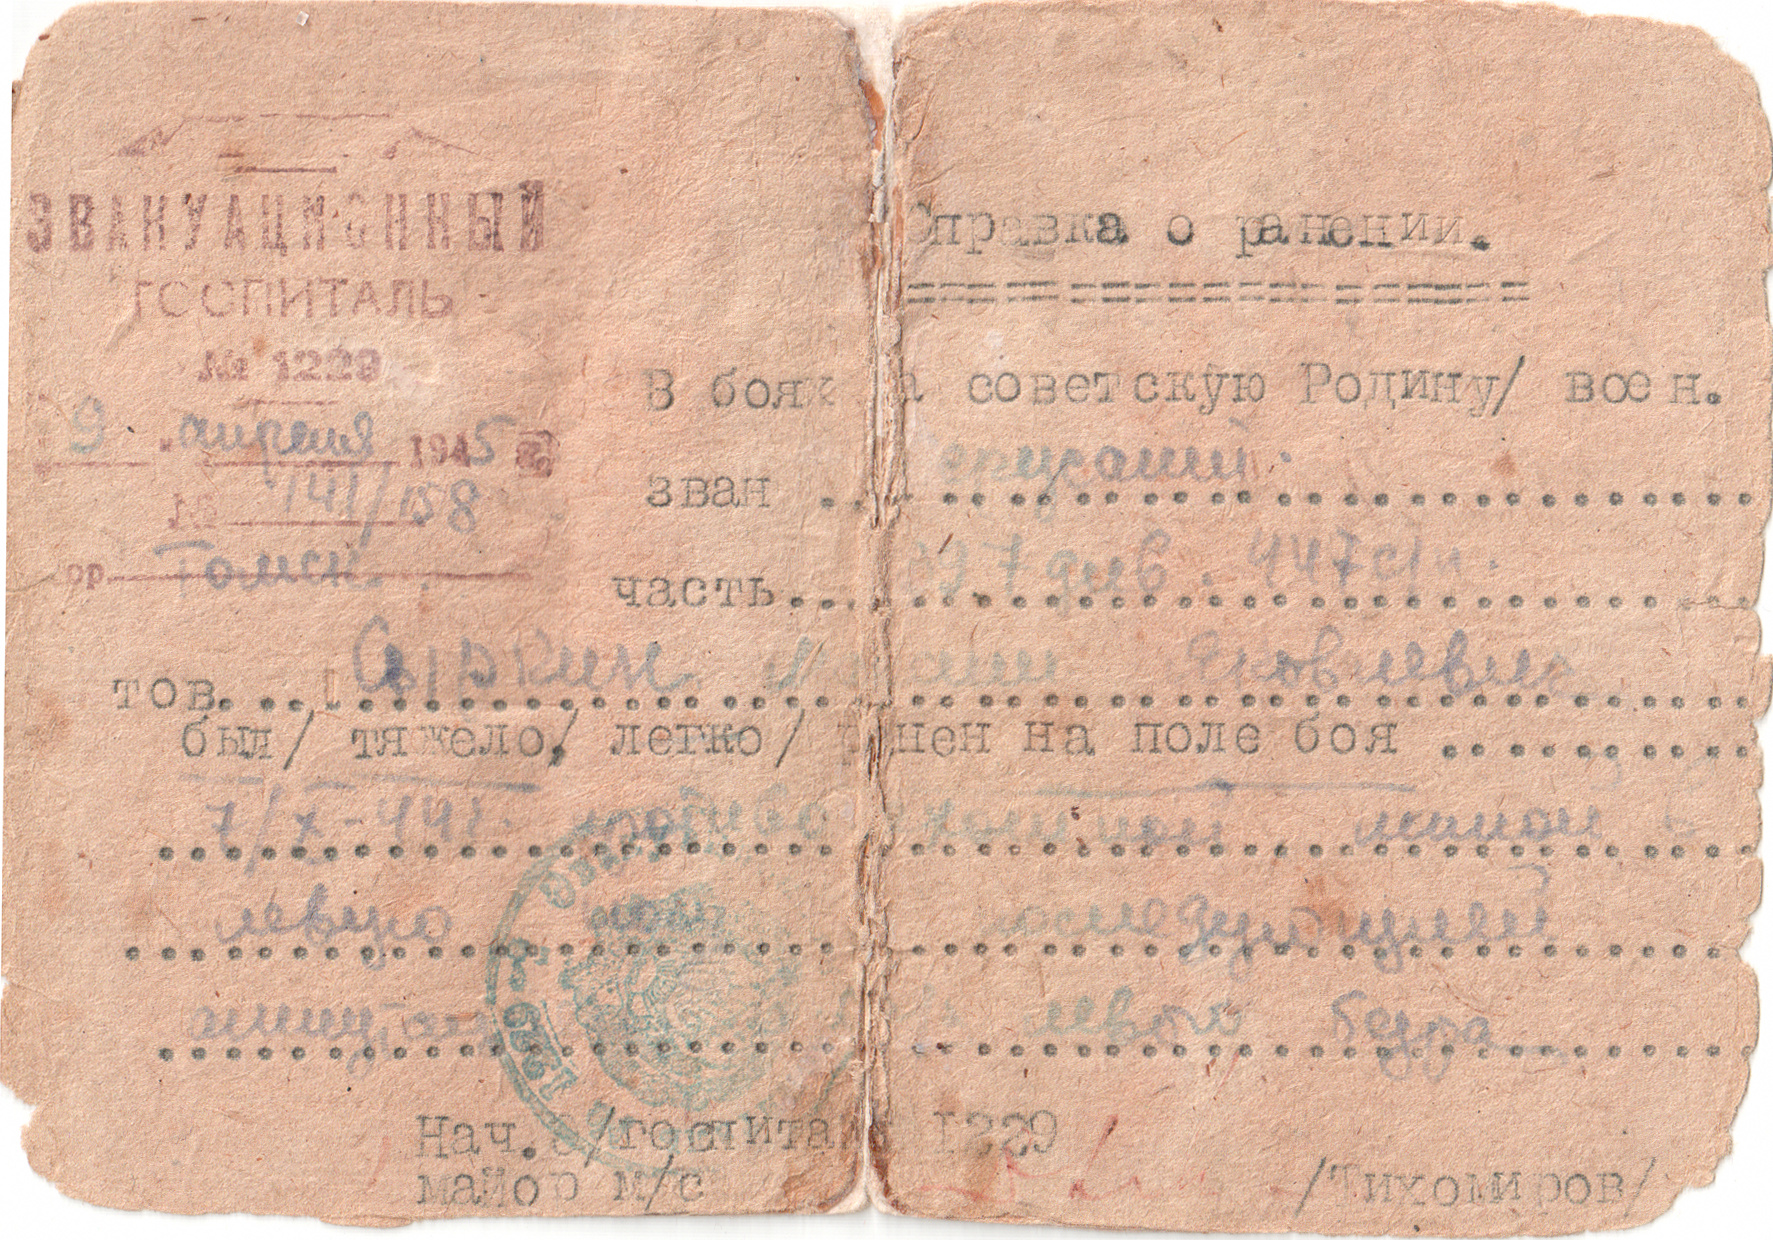 ЭВАКУАЦИОННЫЙ
ГОСПИТАЛЬ
№ 1229
9 апреля 1945
№ 141/158
гор Томск.
Справка о ранении.
===================
В боях за советскую Родину/ воен.
зван .........................
часть....... див. 447 с/п.
тов.... Сыркин Яковлевич
был/ тяжело, легко/ ранен на поле боя ..........
7/X-44г. миной
левую последующей
левого бедра
Нач.э/госпиталя 1229
майор м/с /Тихомиров/
1229